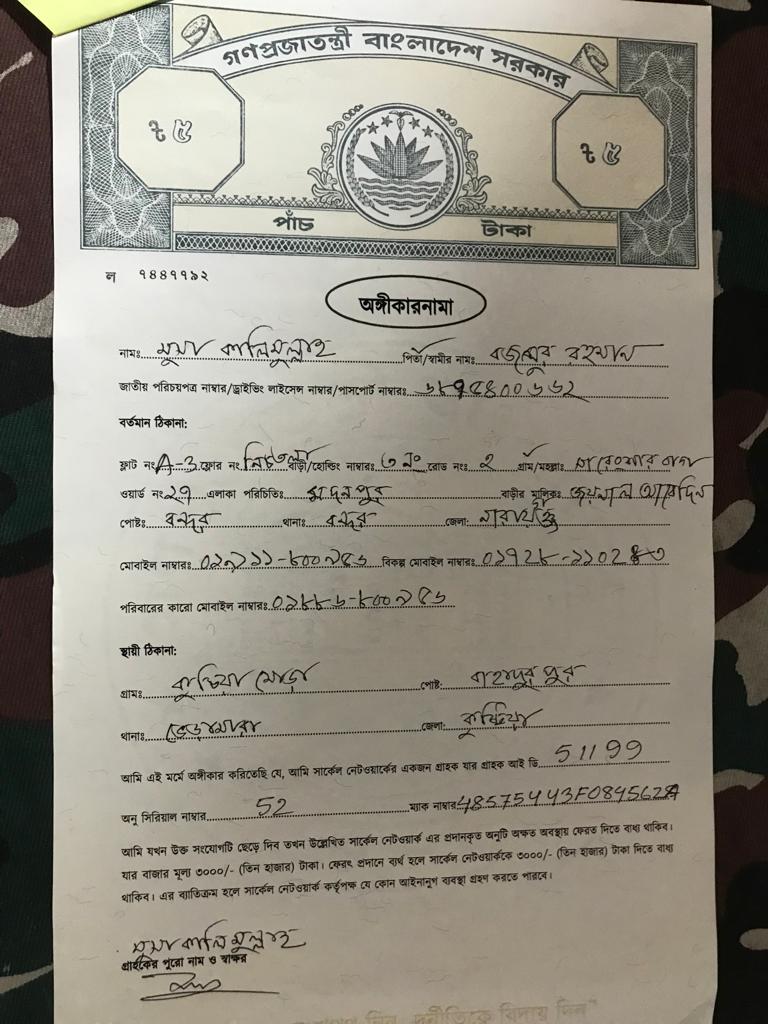 গণপ্রজাতন্ত্রী বাংলাদেশ সরকার
৳ ৫
৳ ৫
পাঁচ টাকা
ল ৭৪৪৭৭৯২
অঙ্গীকারনামা
নামঃ মুসা কালিমুল্লাহ পিতা/স্বামীর নামঃ বজলুর রহমান
জাতীয় পরিচয়পত্র নাম্বার/ড্রাইভিং লাইসেন্স নাম্বার/পাসপোর্ট নাম্বারঃ
বর্তমান ঠিকানা:
ফ্লাট নং A-3 ফ্লোর নং নিচতলা বাড়ী/হোল্ডিং নাম্বারঃ ৩ নং রোড নংঃ ২ গ্রাম/মহল্লাঃ
ওয়ার্ড নং ২৭ এলাকা পরিচিতিঃ মদনপুর বাড়ীর মালিকঃ জয়নাল আবেদিন
পোষ্টঃ বন্দর থানাঃ বন্দর জেলা: নারায়ণগঞ্জ
মোবাইল নাম্বারঃ বিকল্প মোবাইল নাম্বারঃ
পরিবারের কারো মোবাইল নাম্বারঃ
স্থায়ী ঠিকানা:
গ্রামঃ পোষ্ট: বাহাদুরপুর
থানাঃ ভেড়ামারা জেলা: কুষ্টিয়া
আমি এই মর্মে অঙ্গীকার করিতেছি যে, আমি সার্কেল নেটওয়ার্কের একজন গ্রাহক যার গ্রাহক আই ডি 51199
অনু সিরিয়াল নাম্বার 52 ম্যাক নাম্বার
আমি যখন উক্ত সংযোগটি ছেড়ে দিব তখন উল্লেখিত সার্কেল নেটওয়ার্ক এর প্রদানকৃত অনুটি অক্ষত অবস্থায় ফেরত দিতে বাধ্য থাকিব।
যার বাজার মূল্য ৩০০০/- (তিন হাজার) টাকা। ফেরৎ প্রদানে ব্যর্থ হলে সার্কেল নেটওয়ার্ককে ৩০০০/- (তিন হাজার) টাকা দিতে বাধ্য
থাকিব। এর ব্যতিক্রম হলে সার্কেল নেটওয়ার্ক কর্তৃপক্ষ যে কোন আইনানুগ ব্যবস্থা গ্রহণ করতে পারবে।
মুসা কালিমুল্লাহ
গ্রাহকের পুরো নাম ও স্বাক্ষর
দিন, দুর্নীতিকে বিদায় দিন"